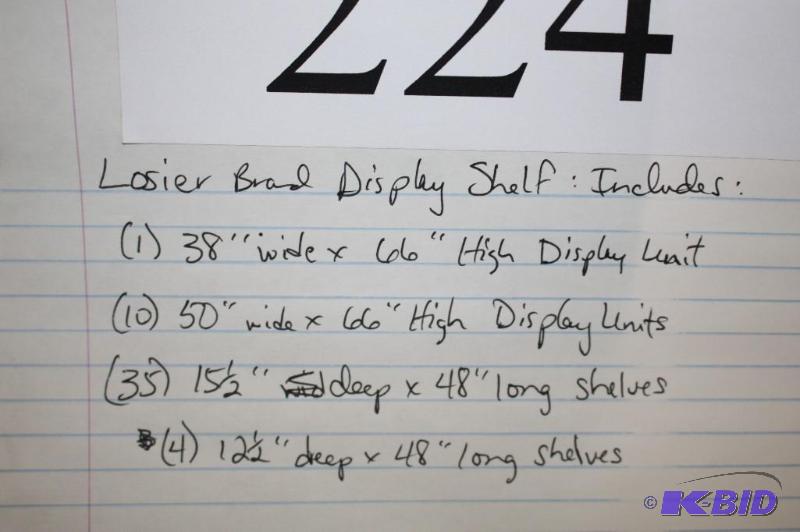 224
Losier Brand Display Shelf : Includes :
(1) 38" wide x 66" High Display Unit
(10) 50" wide x 66" High Display Units
(35) 15½" deep x 48" long shelves
(4) 12½" deep x 48" long shelves
© K-BID